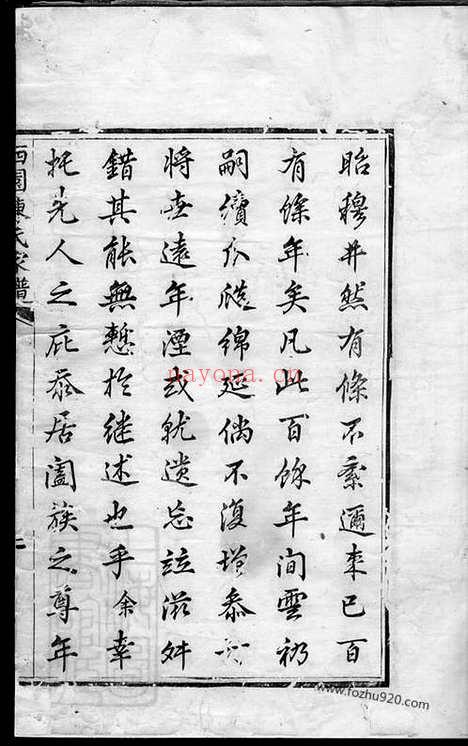 昭穆井然有條不紊邇來已百
有餘年矣凡此百餘年間雲礽
嗣續瓜瓞綿延倘不復增忝
將世遠年湮或就遺忘竝滋舛
錯其能無愆於继述也乎余幸
托先人之庇忝居闔族之尊年
西園陳氏家譜
nayona.cn
www.fozhu920.com